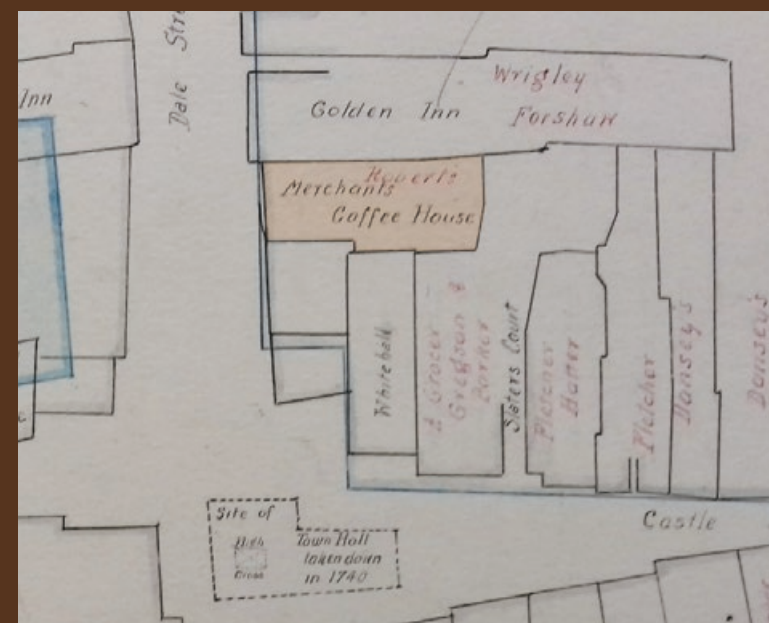 Dale Stre
Inn
Wrigley
Golden Inn Forshaw
Roberts
Merchants
Coffee House
Whitehall
A Grocer
Gregson &
Parker
Slaters Court
Fletcher
Hatter
Fletcher
Dansey's
Dansey's
Castle
Site of
High
Cross
Town Hall
taken down
in 1740